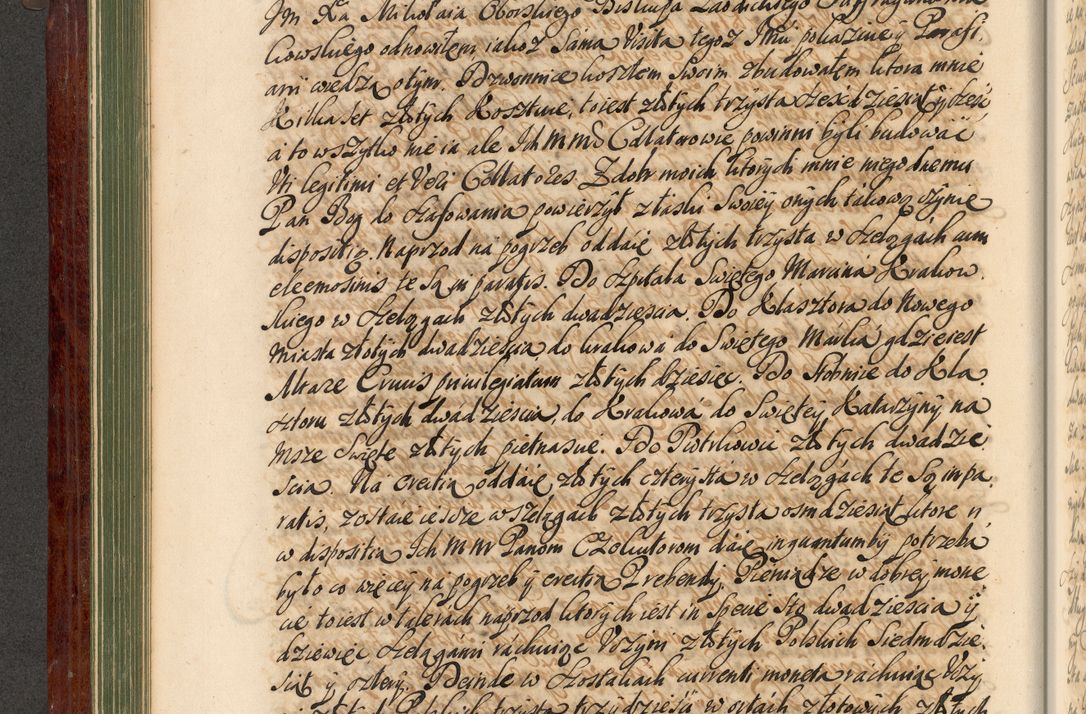 Jm Xa Mikołaia Oborskiego Biskupa Laodickiego Suffragana Kra
kowskiego odnowiłem iakoż Sama Visita tegoż Jmci pokazuie y Parafi,
ani wiedzą o tym. Dzwonnice kosztem Swoim zbudowałem ktora mnie
Kilka set złotych Kosztuie, to iest złotych trzysta sześćdziesiąt y sześć
a to wszytko nie ia ale Ich MM Collatorowie powinni byli budować
Vti legitimi et Veri Collatores. Z dobr moich ktorych mnie niegodnemu
Pan Bog do szafowania powierzył z łaski Swoiey onych takową czynię
disposition. Naprzod na pogrzeb oddaię złotych trzysta w szelągach cum
eleemosinis te są in paratis. Do szpitala Swiętego Marcina Krakow
skiego w szelągach złotych dwadziescia. Do Klasztora do Nowego
Miasta złotych dwadziescia do Krakowa do Swiętego Marka gdzie iest
Altare Crucis priuilegiatum złotych dziesięc. Do Stobnice do Kla
sztoru złotych dwadziescia, do Krakowa do Swiętey Katarzyny na
Msze Swięte złotych piętnascie. Do Piotrkowic złotych dwadzie
scia. Na erectią oddaię złotych czterysta w szelągach te są in pa
ratis, zostaie ieszcze w szelągach złotych trzysta osmdziesiąt ktore
w disposition Ich MM Panom Exekutorom daię inquantumby potrzeba
było co więcey na pogrzeb y erectią Prebendy. Pieniądze w dobrey mone
cie to iest w talerach naprzod ktorych iest in specie sto dwadziescia y
dziewięc szelągami rachuiąc Vczyni złotych Polskich Siedmdzie
siąt y cztery. Deinde w szostakach currenti moneta rachuiąc Vczy
ni złotych Polskich trzysta trzydziesci w ortach złotowych złotych